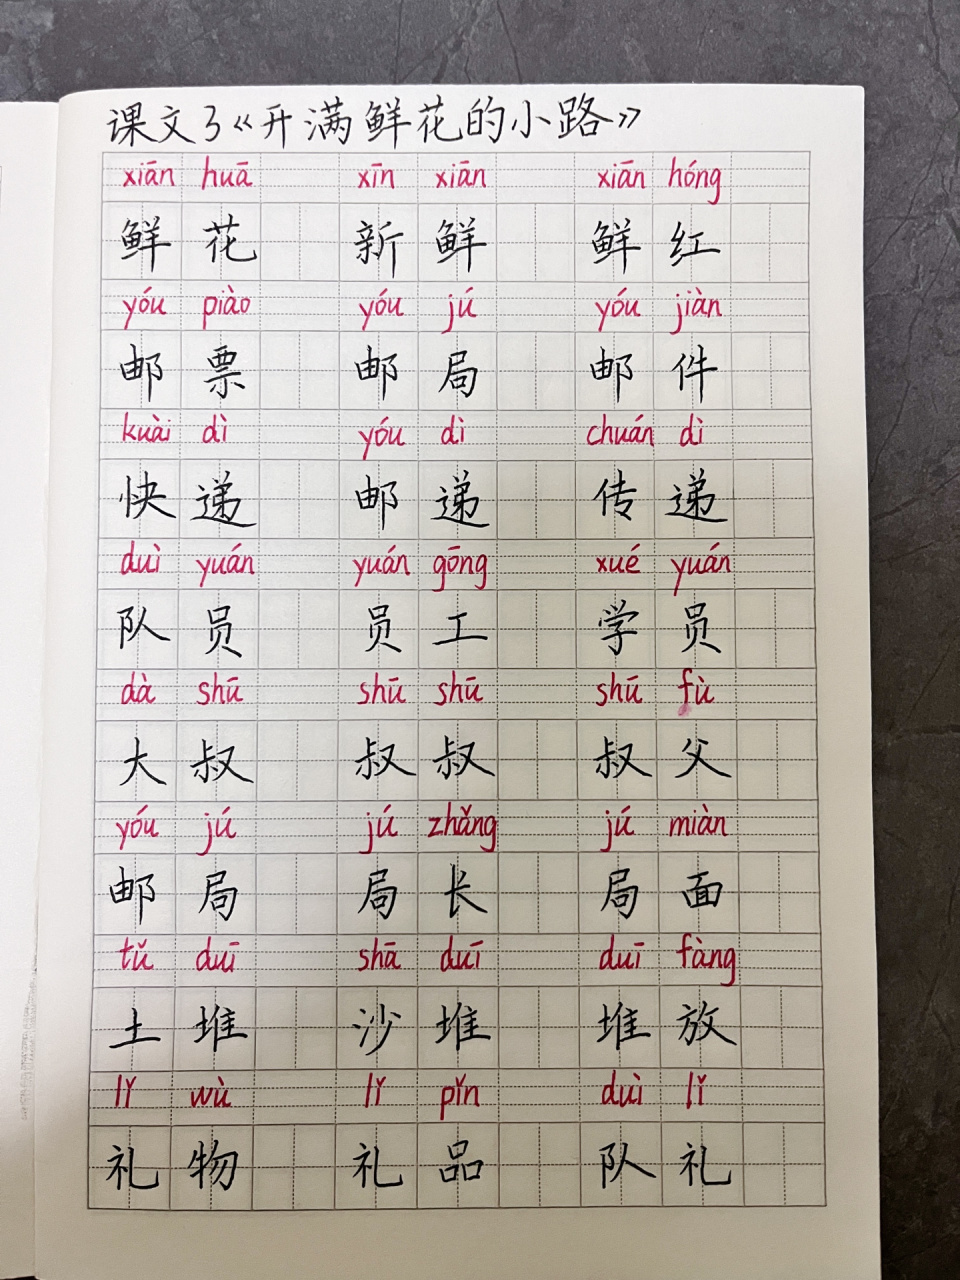 课文3《开满鲜花的小路》
xiān huā xīn xiān xiān hóng
鲜花 新鲜 鲜红
yóu piào yóu jú yóu jiàn
邮票 邮局 邮件
kuài dì yóu dì chuán dì
快递 邮递 传递
duì yuán yuán gōng xué yuán
队员 员工 学员
dà shū shū shū shū fù
大叔 叔叔 叔父
yóu jú jú zhǎng jú miàn
邮局 局长 局面
tǔ duī shā duī duī fàng
土堆 沙堆 堆放
lǐ wù lǐ pǐn duì lǐ
礼物 礼品 队礼